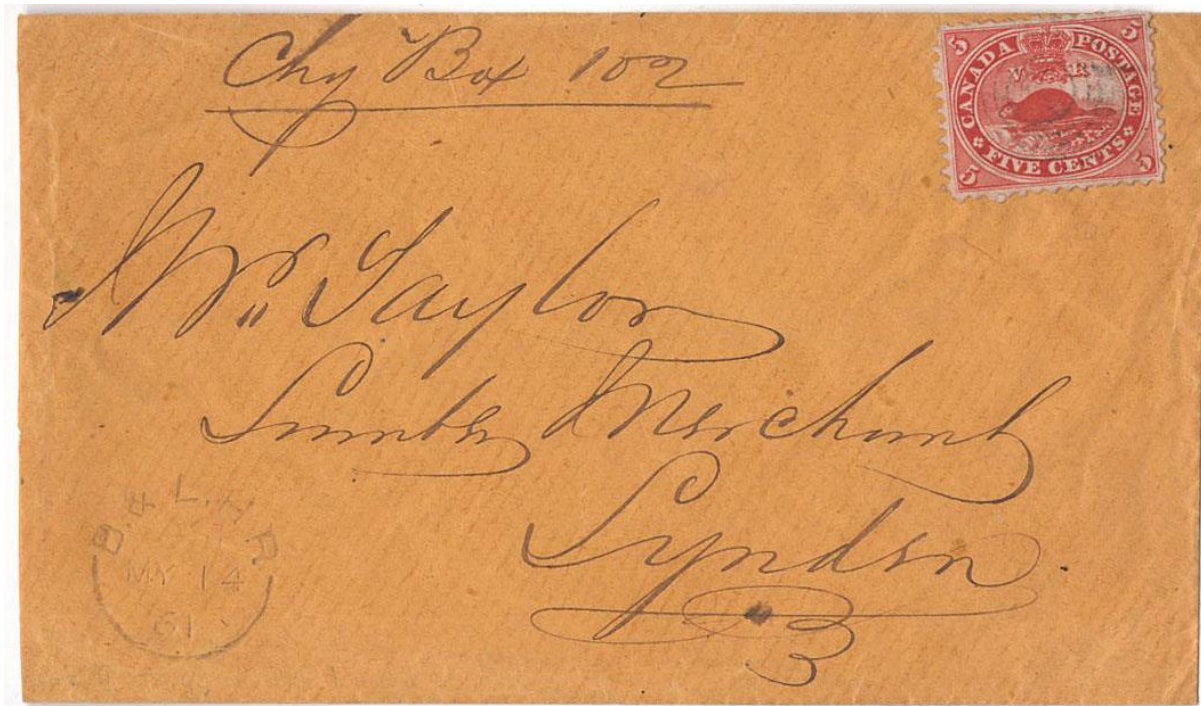 Chg Box 102
5 CANADA POSTAGE 5
V R
5 FIVE CENTS 5
Mr. Taylor
Lumber Merchant
Lynden
B. & L. H. R.
MY 14
61